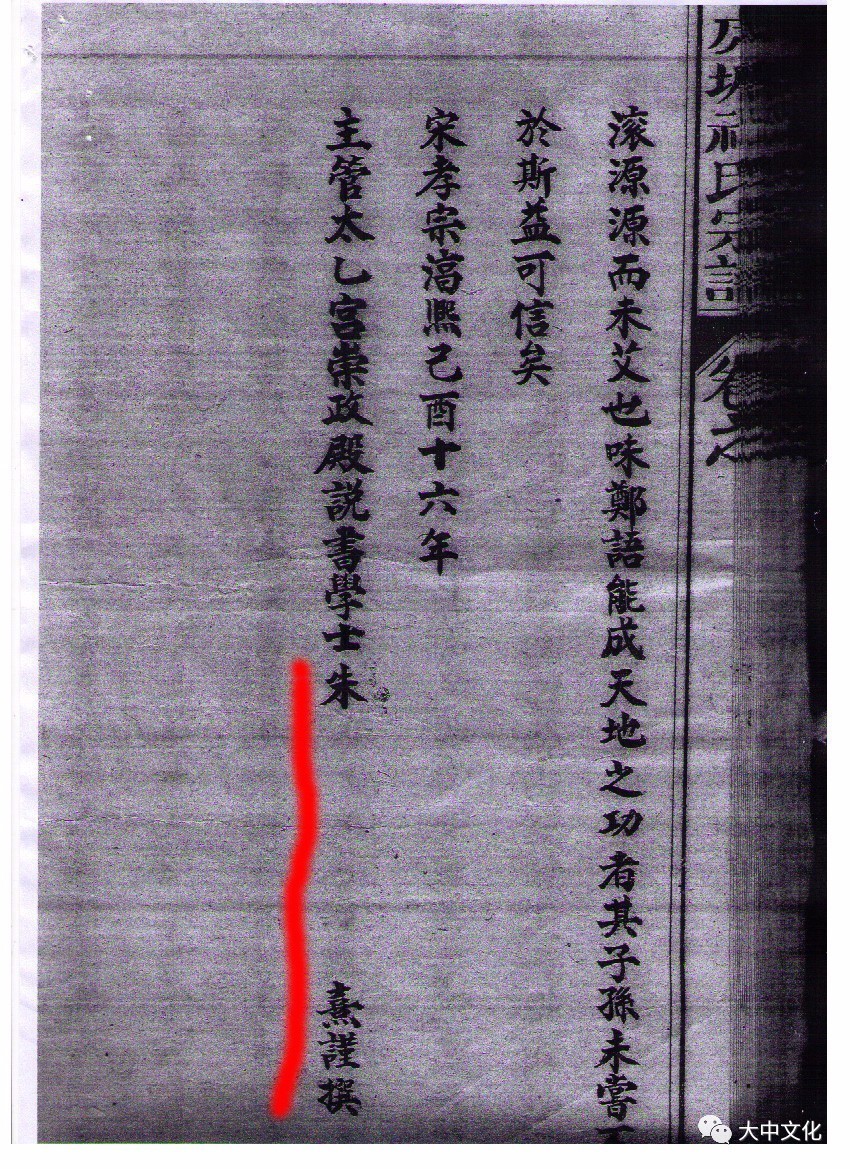 祝氏宗譜
滚源源而未艾也味鄭語能成天地之功者其子孫未嘗不
於斯益可信矣
宋孝宗湻熈己酉十六年
主管太乚宫崇政殿説書學士朱 熹謹撰
大中文化